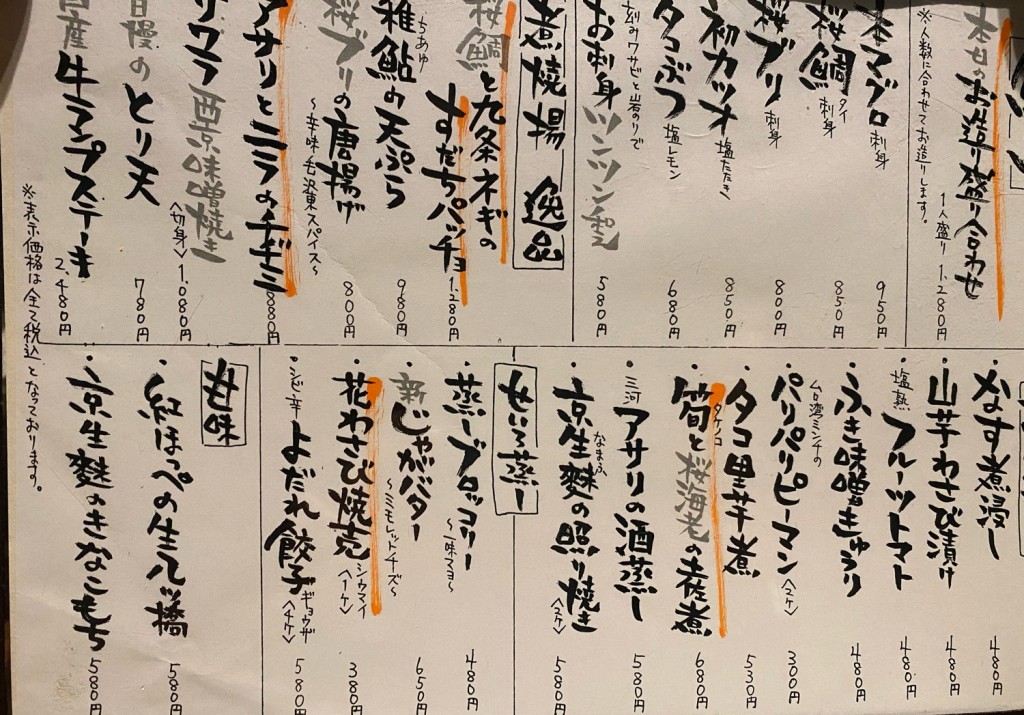 本日のお造り盛り合わせ
1人盛り 1,280円
※人数に合わせてお造りします。
本マグロ 刺身 950円
桜鯛 タイ 刺身 850円
桜ブリ 刺身 800円
初カツオ 塩たたき 850円
タコぶつ 塩レモン 680円
刻みワサビと岩のりで
お刺身ツンツン和え 580円
煮焼揚 逸品
桜鯛と九条ネギの
すだちパッチョ 1,280円
ちあゆ
稚鮎の天ぷら 980円
桜ブリの唐揚げ 800円
〜辛味毛沢東スパイス〜
アサリとニラのチヂミ 880円
サワラ西京味噌焼き
〈切身〉 1,080円
自慢のとり天 780円
国産牛ランプステーキ 2,480円
※表示価格は全て税込となっております。
なす煮浸し 480円
・山芋わさび漬け 480円
・塩熟 フルーツトマト 480円
・ふき味噌きゅうり 480円
台湾ミンチの
・パリパリピーマン〈2ケ〉 300円
・タコ里芋煮 530円
タケノコ
・筍と桜海老の土佐煮 680円
・三河 アサリの酒蒸し 580円
なまふ
・京生麩の照り焼き〈2ケ〉 580円
せいろ蒸し
・蒸しブロッコリー 〜一味マヨ〜 480円
・新じゃがバター 〜ミモレットチーズ〜 650円
・花わさび焼売 シウマイ〈1ケ〉 380円
・シビ辛 よだれ餃子 ギョウザ〈4ケ〉 580円
甘味
・紅ほっぺの生八ツ橋 580円
・京生麩のきなこもち 580円